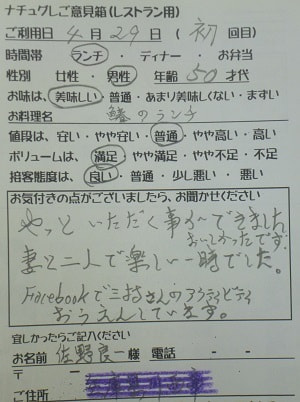 ナチュグしご意見箱(レストラン用)
ご利用日 4月29日(初 回目)
時間帯 ランチ・ディナー・お弁当
性別 女性・男性 年齢 50才代
お味は、美味しい・普通・あまり美味しくない・まずい
お料理名 のランチ
値段は、安い・やや安い・普通・やや高い・高い
ボリュームは、満足・やや満足・やや不足・不足
接客態度は、良い・普通・少し悪い・悪い
お気付きの点がございましたら、お聞かせください
やっと いただく事ができました
おいしかったです。
妻と二人で楽しい一時でした。
Facebookで三おさんのアクティビティ
おうえんしています。
宜しかったらご記入ください
お名前 佐野良一様 電話 - -
〒
ご住所